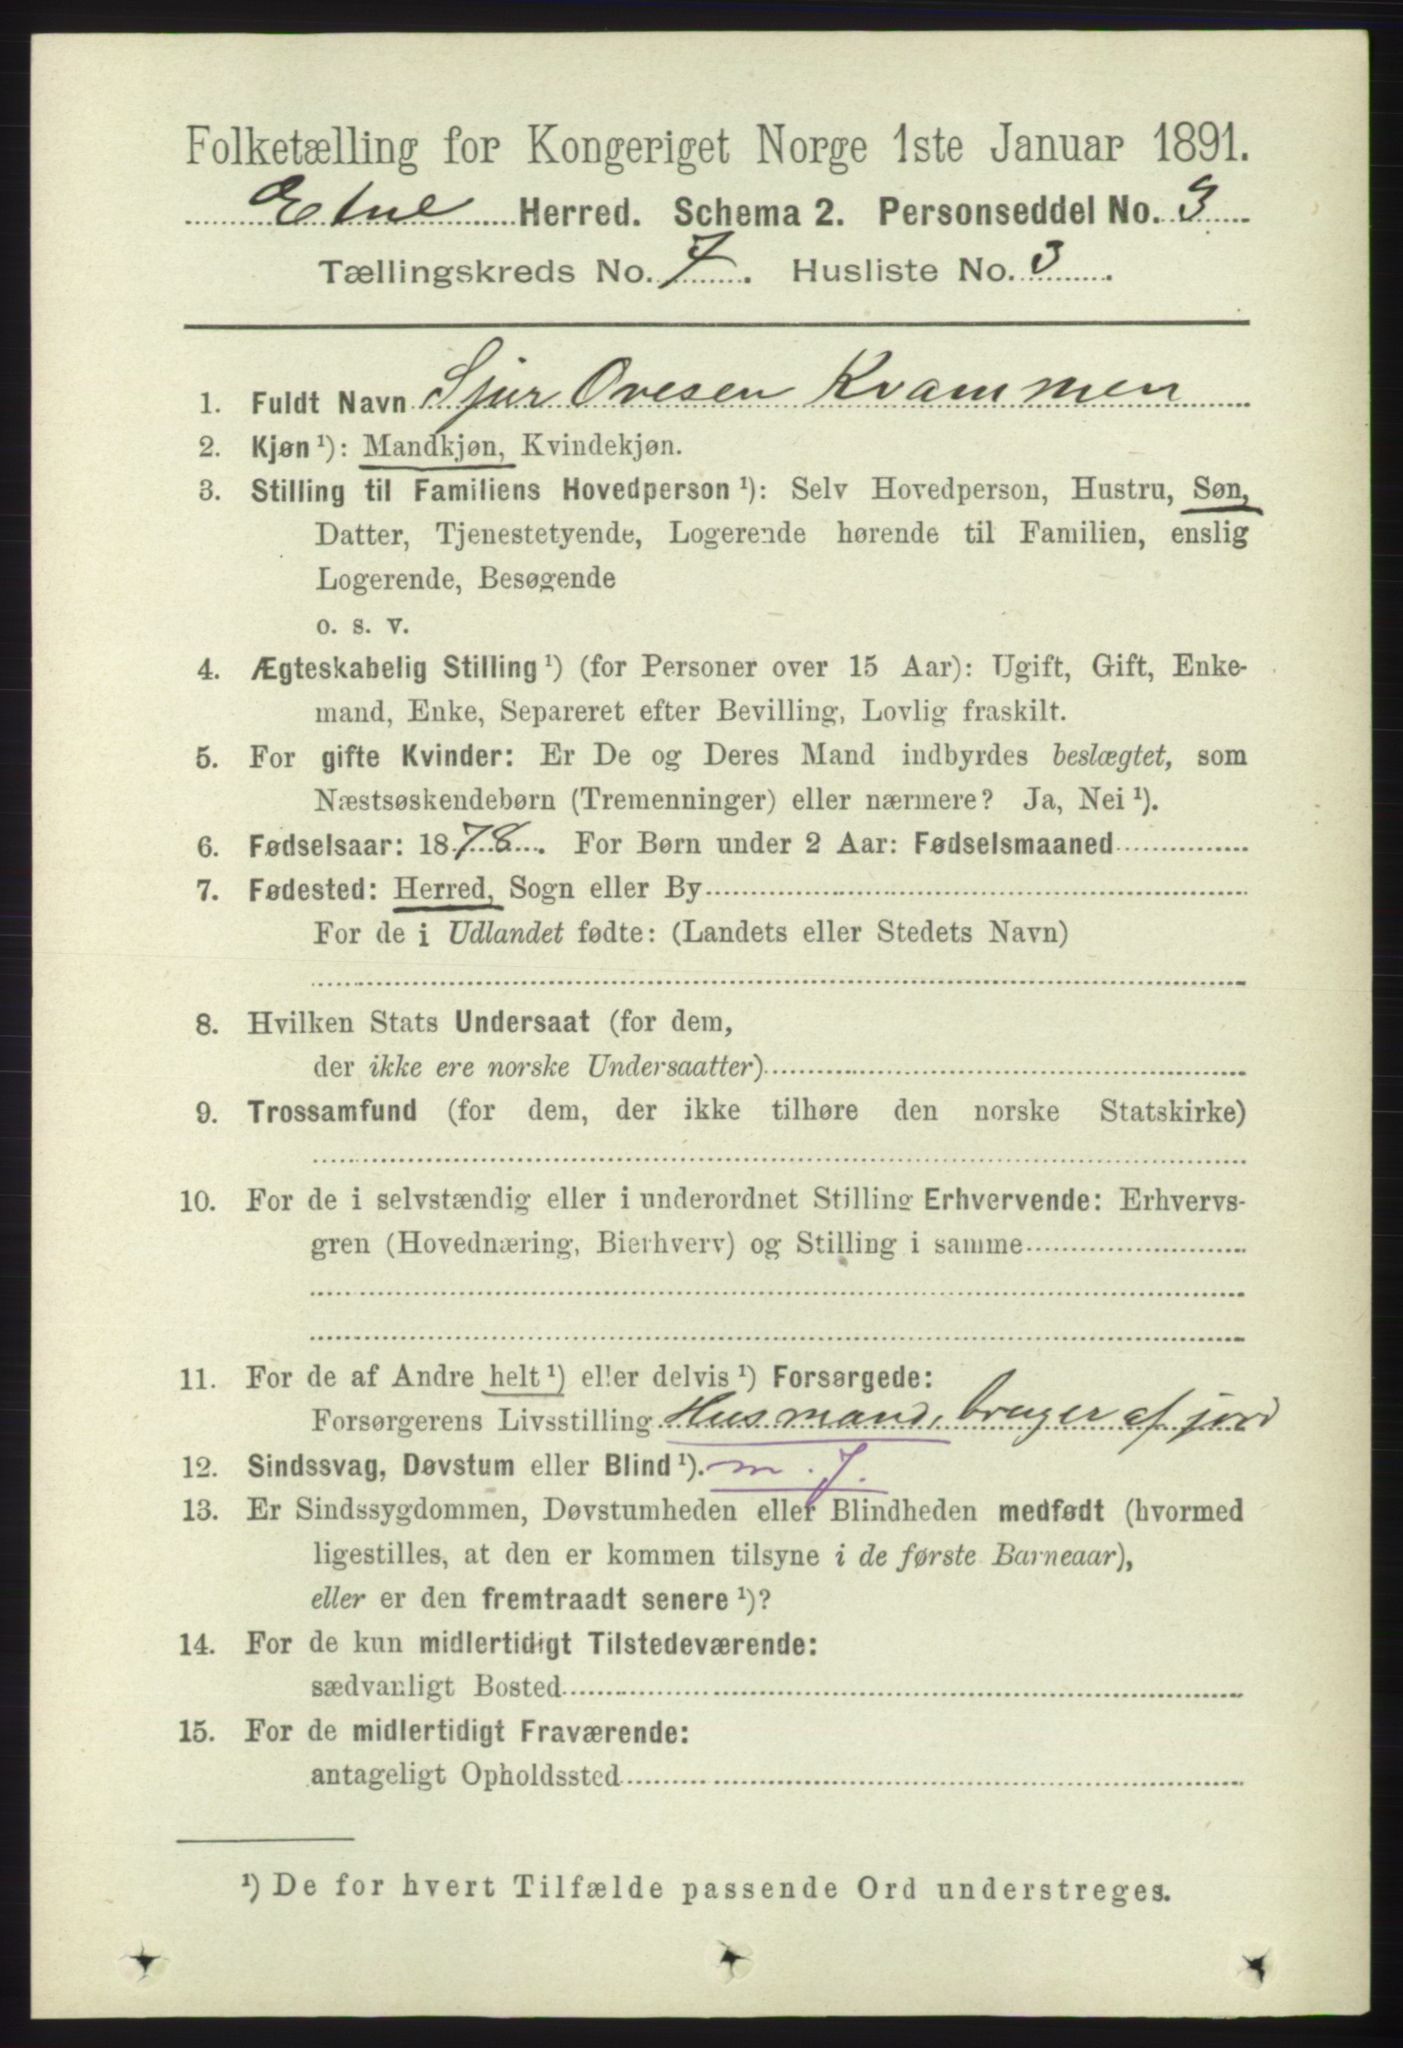 Folketælling for Kongeriget Norge 1ste Januar 1891.
Etne Herred. Schema 2. Personseddel No. 3
Tællingskreds No. 7. Husliste No. 3.
1. Fuldt Navn Sjur Ovesen Kvammen
2. Kjøn ¹): Mandkjøn, Kvindekjøn.
3. Stilling til Familiens Hovedperson ¹): Selv Hovedperson, Hustru, Søn,
Datter, Tjenestetyende, Logerende hørende til Familien, enslig
Logerende, Besøgende
o. s. v.
4. Ægteskabelig Stilling ¹) (for Personer over 15 Aar): Ugift, Gift, Enke-
mand, Enke, Separeret efter Bevilling, Lovlig fraskilt.
5. For gifte Kvinder: Er De og Deres Mand indbyrdes beslægtet, som
Næstsøskendebørn (Tremenninger) eller nærmere? Ja, Nei ¹).
6. Fødselsaar: 1878. For Børn under 2 Aar: Fødselsmaaned
7. Fødested: Herred, Sogn eller By
For de i Udlandet fødte: (Landets eller Stedets Navn)
8. Hvilken Stats Undersaat (for dem,
der ikke ere norske Undersaatter)
9. Trossamfund (for dem, der ikke tilhøre den norske Statskirke)
10. For de i selvstændig eller i underordnet Stilling Erhvervende: Erhvervs-
gren (Hovednæring, Bierhverv) og Stilling i samme
11. For de af Andre helt ¹) eller delvis ¹) Forsørgede:
Forsørgerens Livsstilling Husmand, bruger af jord
12. Sindssvag, Døvstum eller Blind ¹). m. J.
13. Er Sindssygdommen, Døvstumheden eller Blindheden medfødt (hvormed
ligestilles, at den er kommen tilsyne i de første Barneaar),
eller er den fremtraadt senere ¹)?
14. For de kun midlertidigt Tilstedeværende:
sædvanligt Bosted
15. For de midlertidigt Fraværende:
antageligt Opholdssted
¹) De for hvert Tilfælde passende Ord understreges.